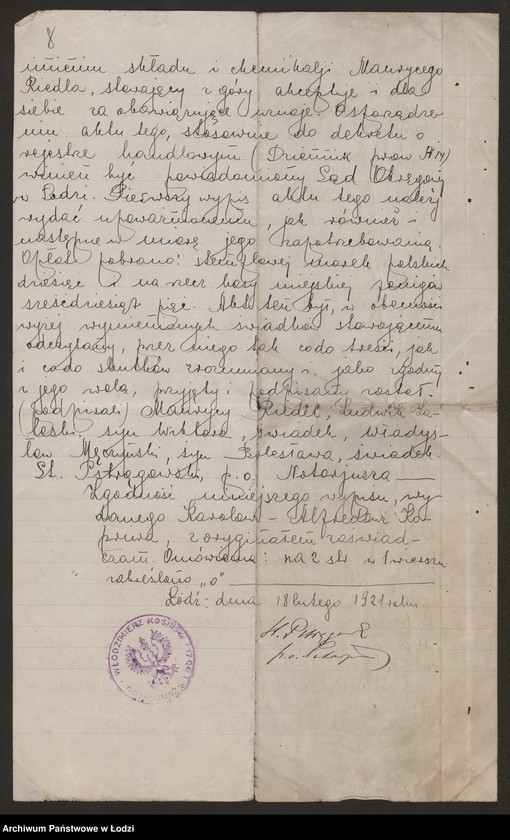 8
imieniu składu i chemikalji Maurycego
Riedla, stawający z góry akceptuje i dla
siebie za obowiązujące uznaje. O sporządze-
niu aktu tego, stosownie do dekretu o
rejestrze handlowym (Dziennik praw № 14)
winien być powiadomiony Sąd Okręgowy
w Łodzi. Pierwszy wypis aktu tego należy
wydać upoważnionemu, jak również i
następne w miarę jego zapotrzebowania.
Opłat pobrano: stemplowej marek polskich
dziesięć i na rzecz kasy miejskiej
sześćdziesiąt pięć. Akt ten był, w obecności
wyżej wymienionych świadków stawającemu
odczytany, przez niego tak co do treści, jak
i co do skutków zrozumiany i, jako zgodny
z jego wolą, przyjęty i podpisany został.
(podpisali) Maurycy Riedel, Ludwik
syn Wiktora, świadek, Włady-
sław syn Bolesława, świadek.
St. Pstrągowski, p. o. Notarjusza
Zgodność niniejszego wypisu, wy-
danego Karolowi-Alfredowi
z oryginałem zaświad-
czam. Omówienia: na 2 str. w 1 wierszu
zakreślono „o"
Łódź: dnia 18 lutego 1921 roku
p.o.
WŁODZIMIERZ
Archiwum Państwowe w Łodzi